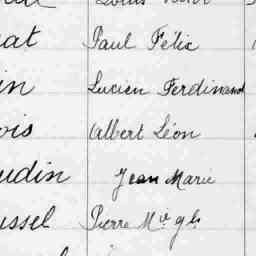 at Paul Félix
in Lucien Ferdinand
ois Albert Léon
udin Jean Marie
ussel Pierre Mie